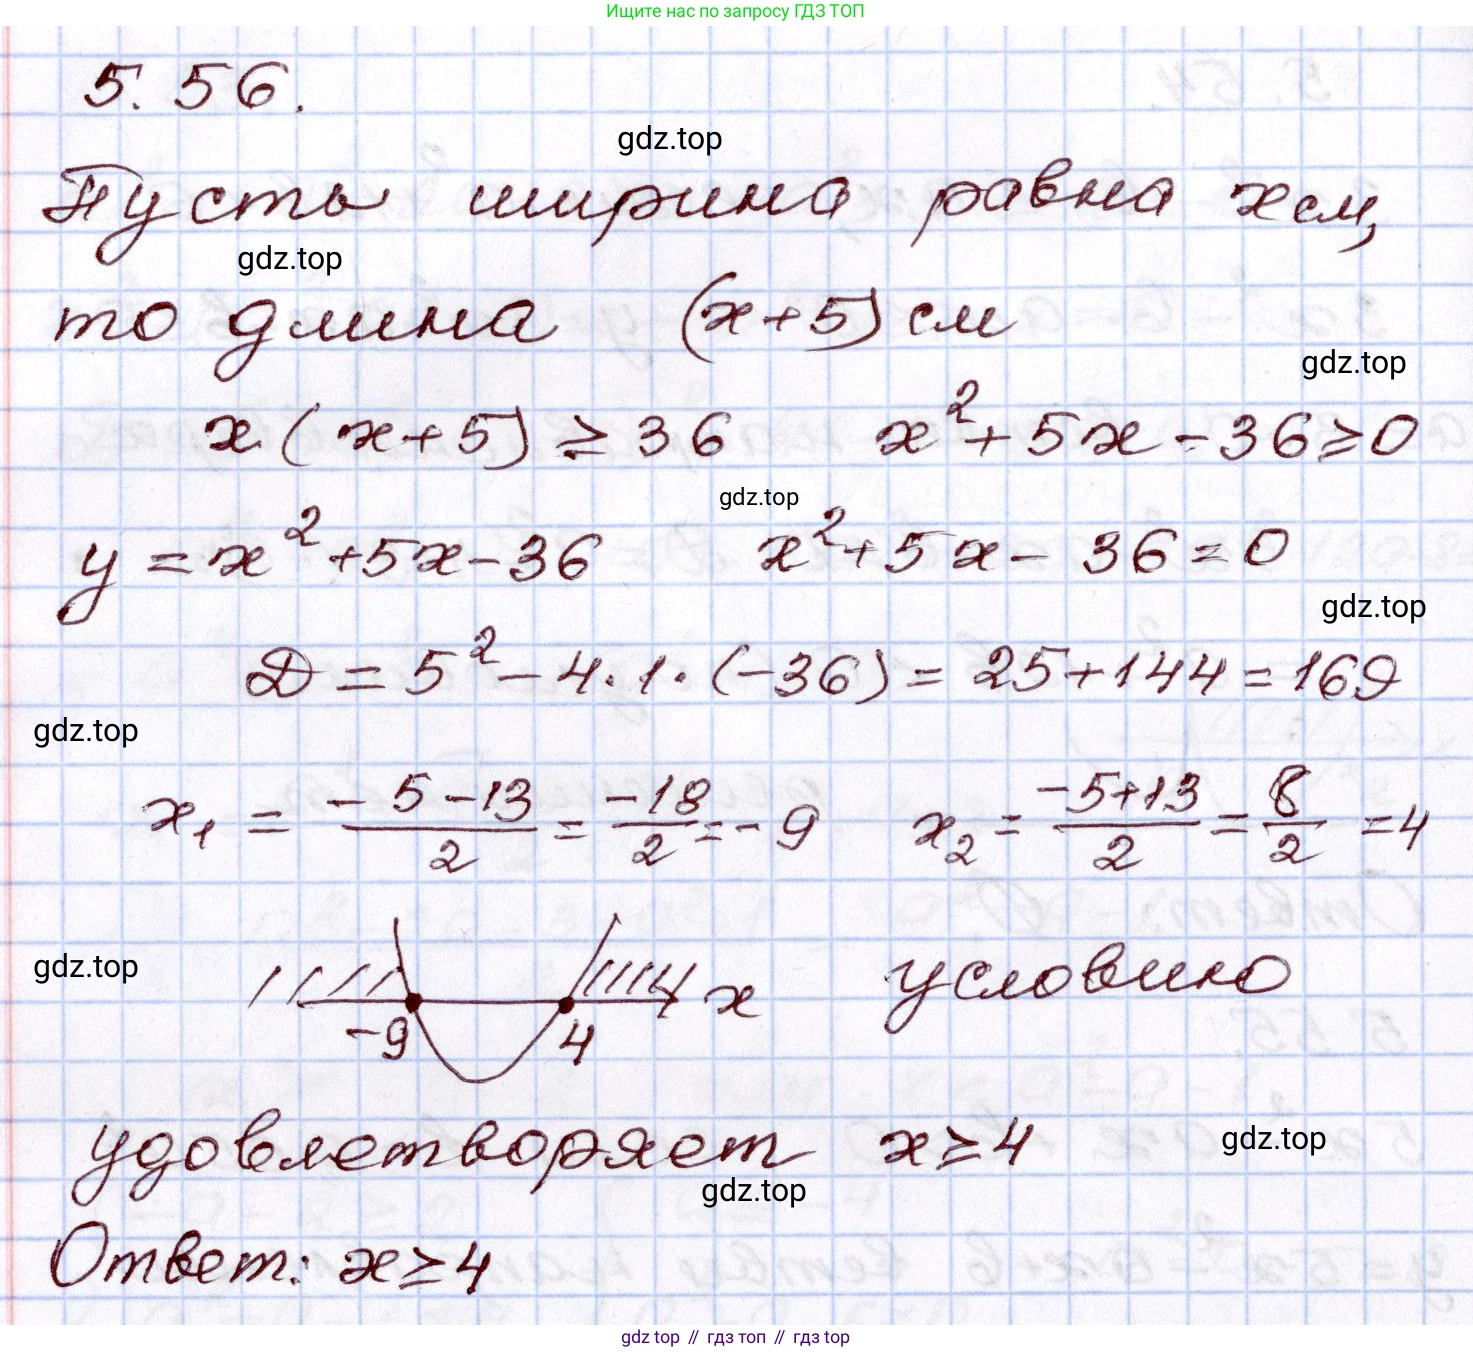 Ищите нас по запросу ГДЗ ТОП
5.56.
gdz.top
Пусть ширина равна x см,
gdz.top
то длина (x+5) см
gdz.top
x(x+5) ≥ 36 x²+5x-36≥0
gdz.top
y=x²+5x-36 x²+5x-36=0
gdz.top
D=5²-4·1·(-36)=25+144=169
gdz.top
x₁ = (-5-13)/2 = -18/2 = -9 x₂ = (-5+13)/2 = 8/2 = 4
gdz.top
-9 4 x условию
удовлетворяет x≥4
gdz.top
gdz.top
Ответ: x≥4
gdz top // гдз топ // гдз top